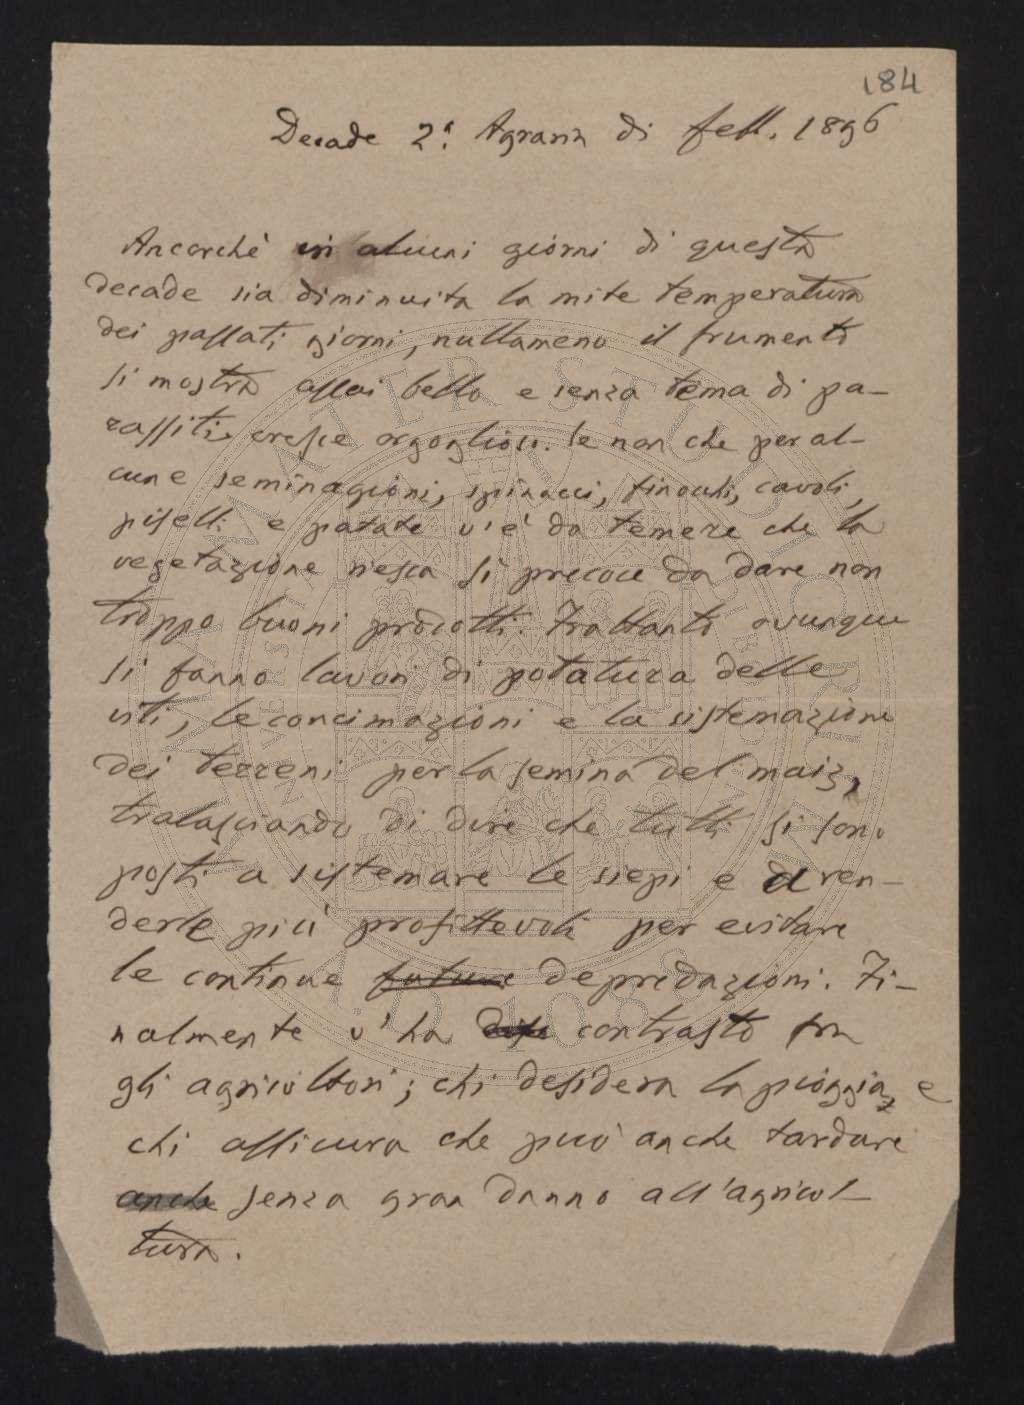 184
Decade 2ª Agraria di febb. 1896
Ancorchè in alcuni giorni di questa
decade sia diminuita la mite temperatura
dei passati giorni, nullameno il frumento
si mostra assai bello e senza tema di pa-
rassiti cresce orgoglioso. Se non che per al-
cune seminagioni, spinacci, finochi, cavoli,
piselli e patate v'è da temere che la
vegetazione riesca sì precoce da dare non
troppo buoni prodotti. Frattanto ovunque
si fanno lavori di potatura delle
viti, le concimazioni e la sistemazione
dei terreni per la semina del maiz,
tralasciando di dire che tutti si sono
posti a sistemare le siepi e a ren-
derle più profittevoli per evitare
le continue future depredazioni. Fi-
nalmente v'ha contrasto fra
gli agricoltori; chi desidera la pioggia, e
chi assicura che può anche tardare
anche senza gran danno all'agricol-
tura.
ALMA MATER STUDIORUM
A.D. 1088